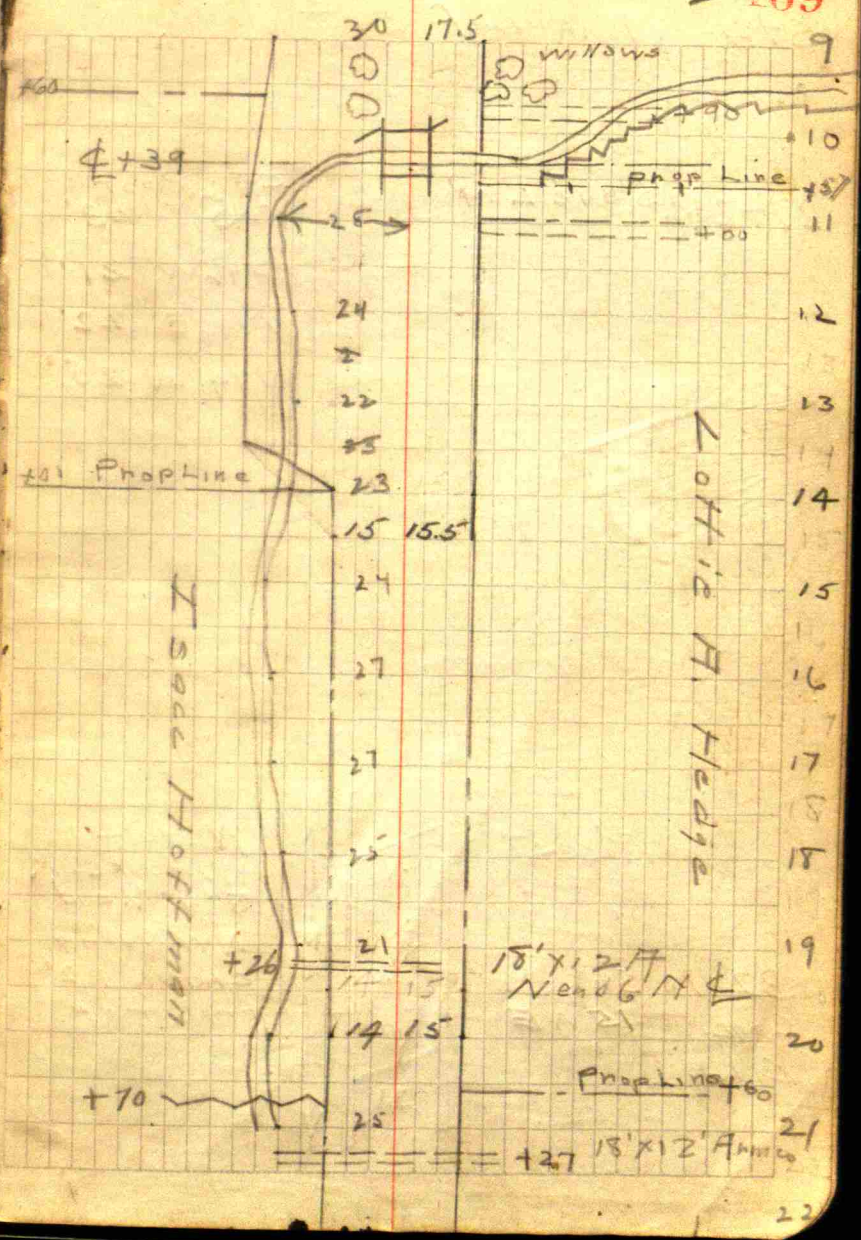 169
30 17.5 9
Willows
+60
+90
10
℄ +39
Prop Line +57
26 11
+00
24 12
22 13
+01 Prop Line 23 14
15 15.5
24 15
27 16
27 17
25 18
Isacc Hoffman
Lottie A. Hedge
21 19
+26 18'x12"
N end 6' N ℄
14 15 20
Prop Line +60
+70
25 21
+27 18'x12' Armco
22